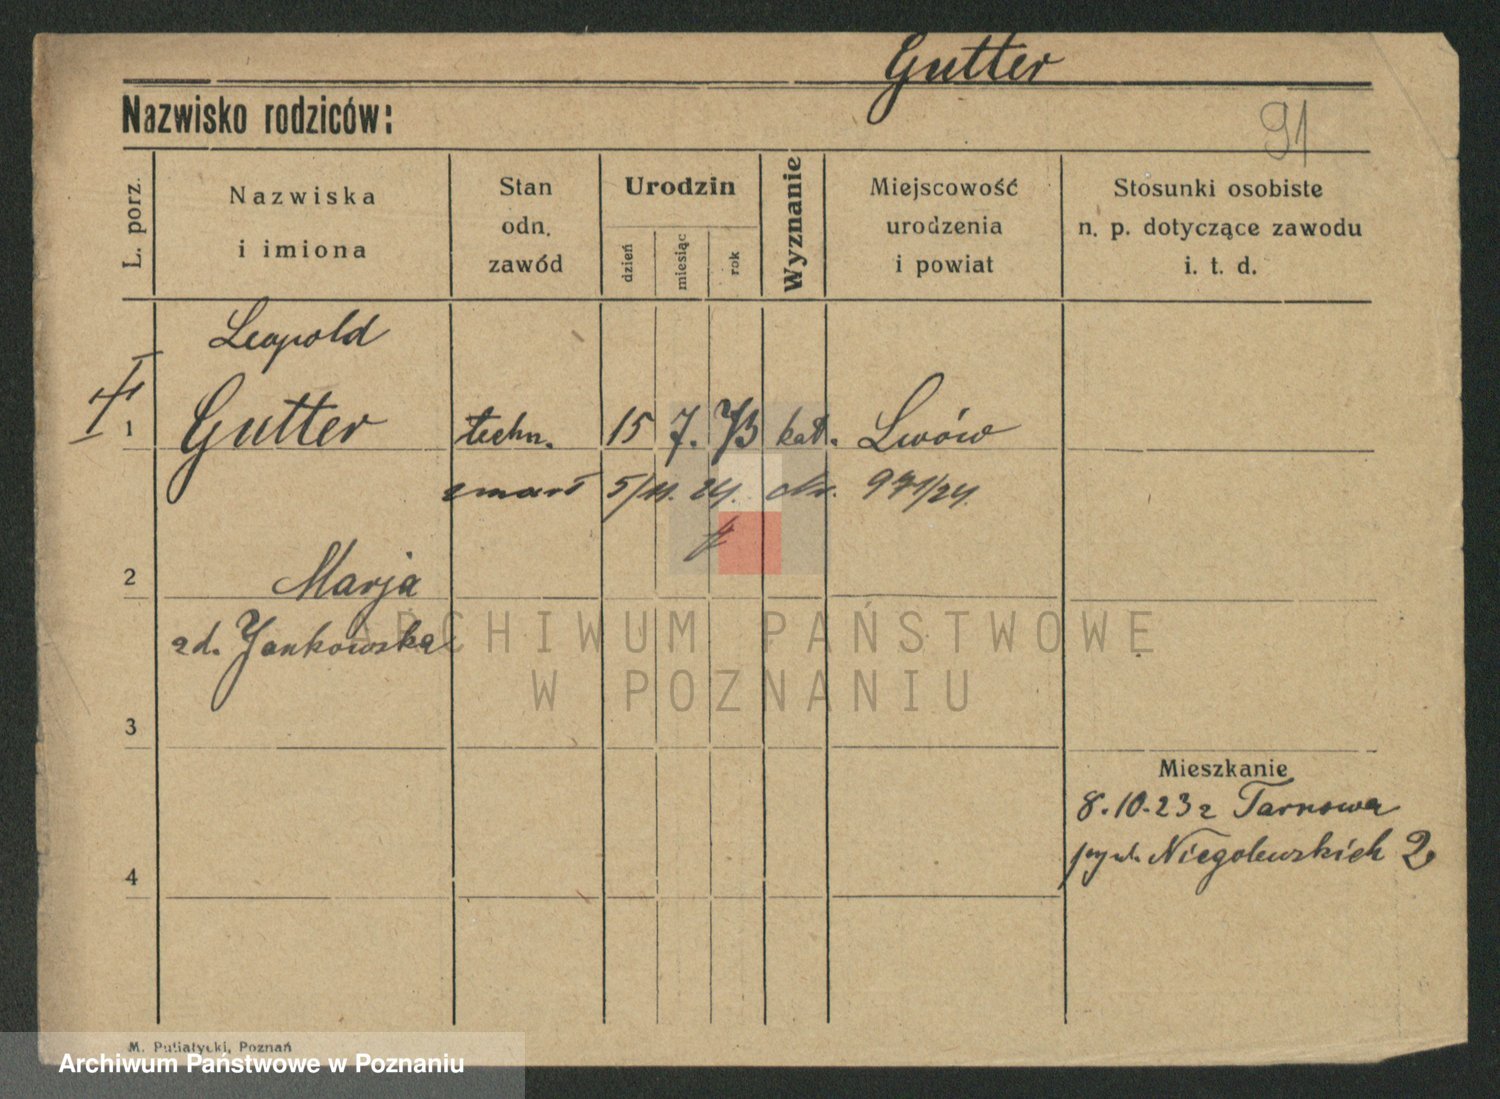 Gutter
Nazwisko rodziców:
91
L. porz.
Nazwiska
i imiona
Stan
odn.
zawód
Urodzin
dzień
miesiąc
rok
Wyznanie
Miejscowość
urodzenia
i powiat
Stosunki osobiste
n. p. dotyczące zawodu
i. t. d.
Leopold
1 Gutter techn. 15 7. 73 kat. Lwów
zmarł 5/11. 24. 971/24.
2 Marja
zd. Jankowska
ARCHIWUM PAŃSTWOWE
W POZNANIU
3
Mieszkanie
8.10.23 z Tarnowa
Niegolewskich 2
4
M. Putiatycki, Poznań
Archiwum Państwowe w Poznaniu